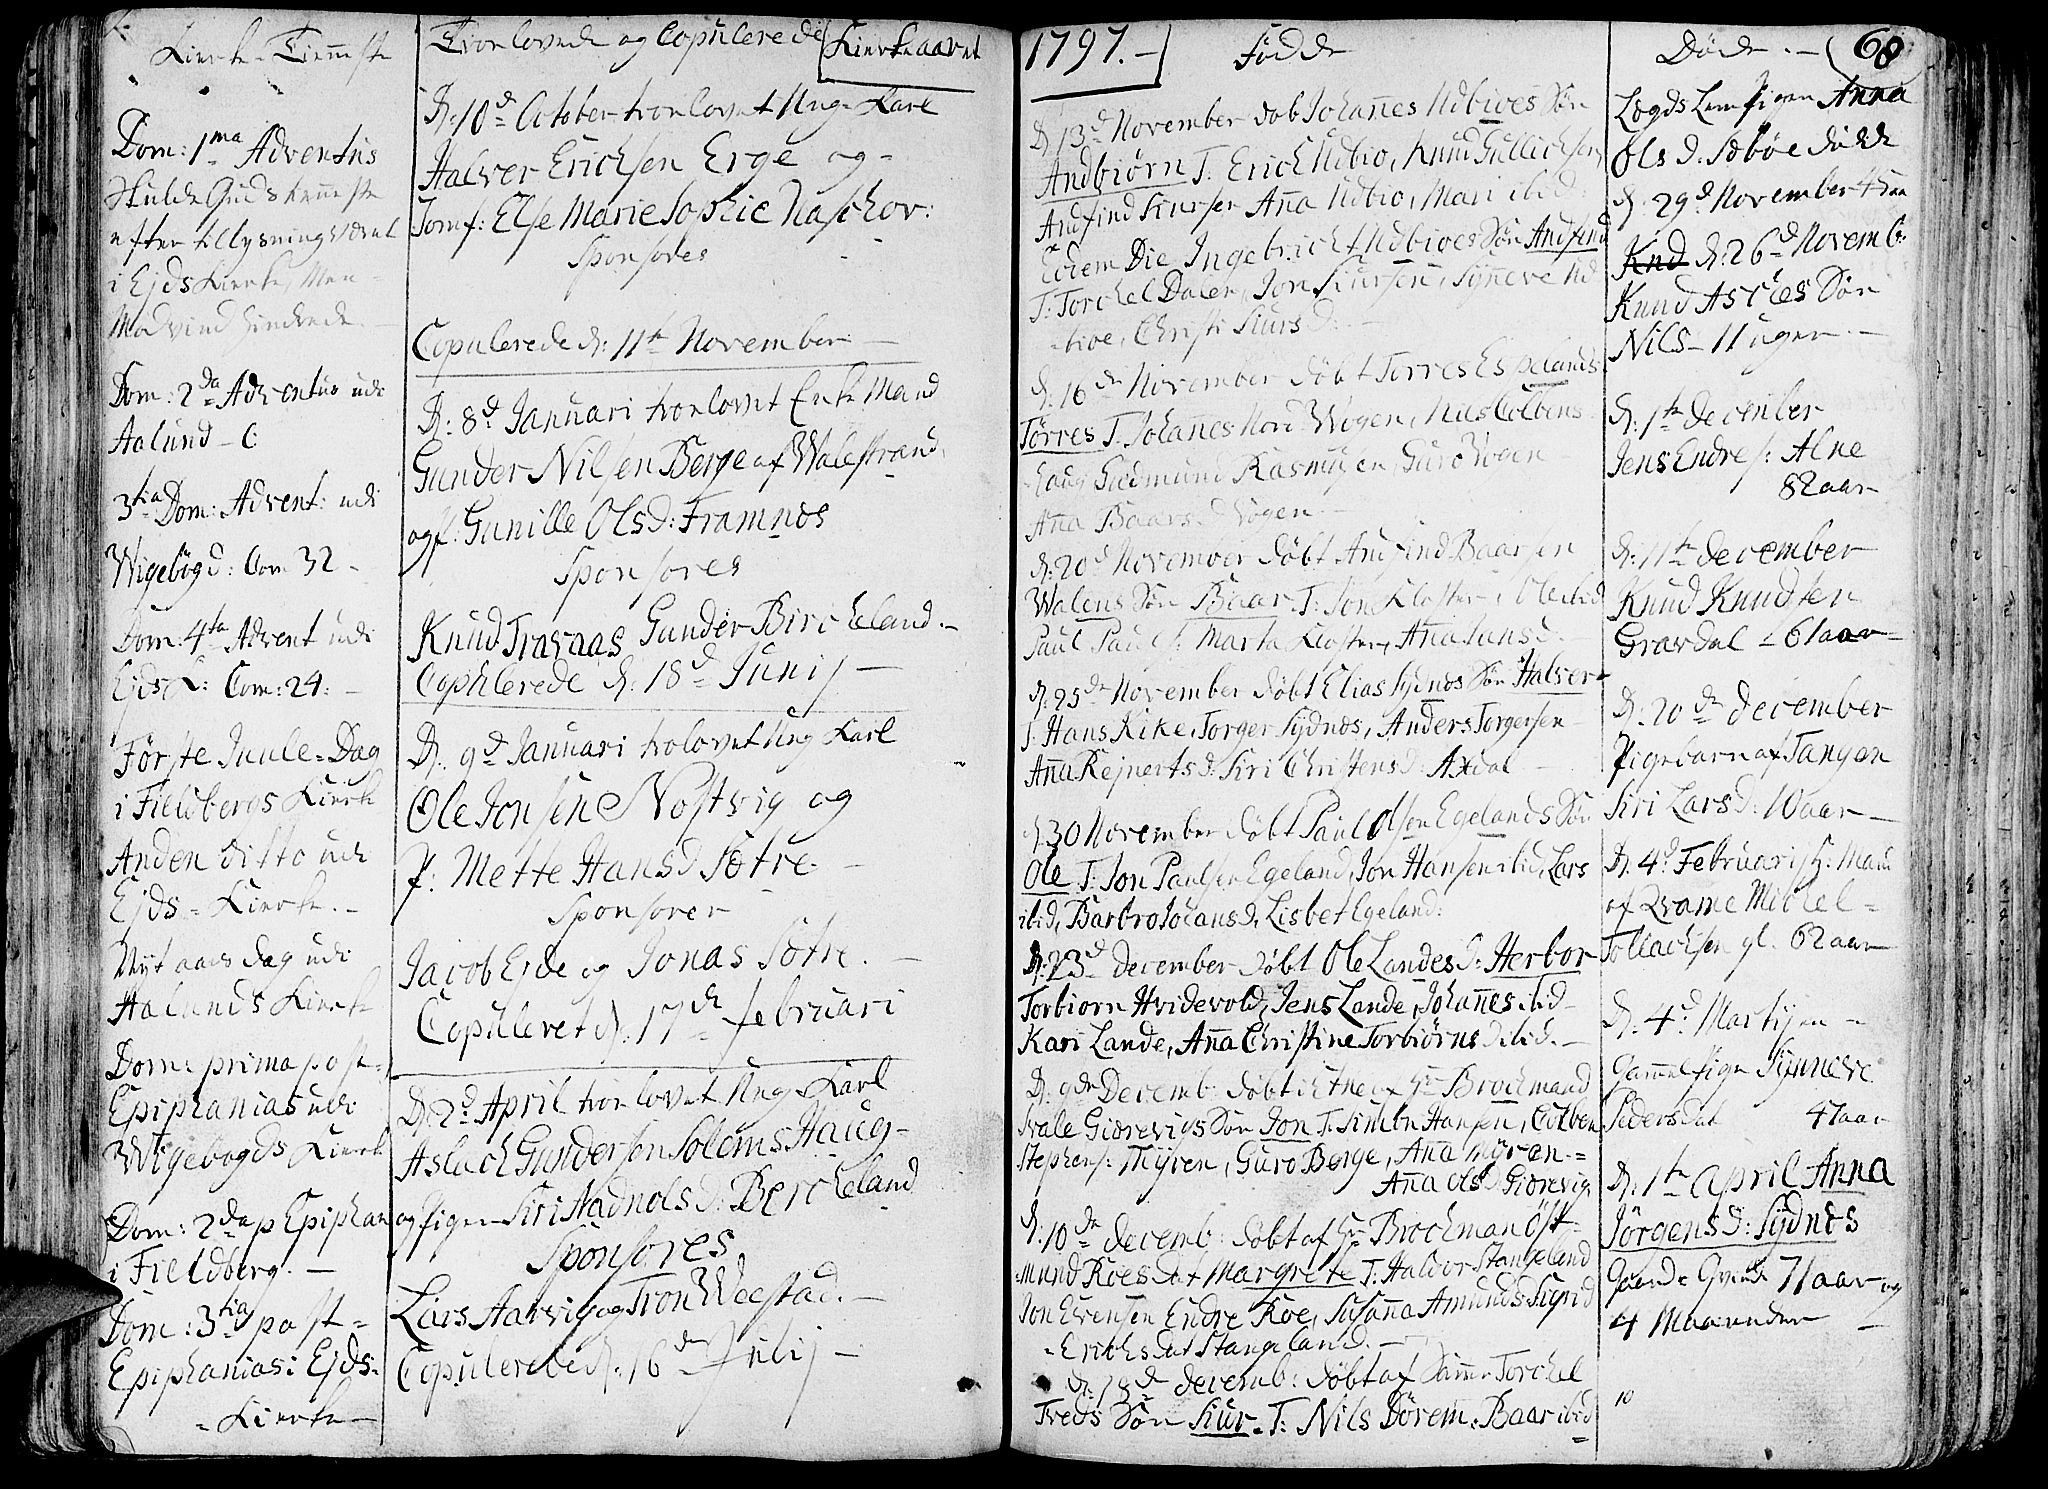 Kierke-Tieneste
Dom: 1ma Adventus
skulde Guds tieneste
efter tillysning været
i Ejds Kierke, Men
Modvind hindrede.
Dom: 2da Adventus udi
Aalund - C
3tia Dom: Advent: udi
Wigebögd: Com 32 -
Dom: 4ta Advent udi
Ejds K: Com: 24: -
Förste Juule-Dag
i Fieldbergs Kierke
Anden ditto udi
Ejds-Kierke. -
Nyt aars dag udi
Aalunds Kierke
Dom: prima post
Epiphanias udi
Wigebogds Kierke
Dom: 2da p Epiphan
i Fieldberg. -
Dom: 3tia post-
Epiphanias i Ejds-
-Kierke-
Trorlovede og Copulerede Kierkeaaret
D: 10d October trorlovet Unge Karl
Halver Erichsen Erge og-
Jomf: Else Marie Sophie Naschov:
Sponsores
Copulerede d: 11te November -
D: 8d Januari trorlovet Enke Mand
Gunder Nilsen Berge af Walestrand,
og p: Gunille Olsd: Framnæs
Sponsores
Knud Travaas Gunder Bircheland. -
Copulerede d: 18d Junij -
D: 9d Januari trolovet Ung Karl
Ole Jonsen Nostvig og
P: Mette Hansd Sætre. -
Sponsorer
Jacob Ejde og Jonas Sætre. -
Copuleret d: 17de februari
D: 2d April trorlovet Ung Karl
Aslach Gundersen Solems Haug-
og Pigen Siri Nadnolsd: Bercheland
Sponsores
Lars Aarvig og Tron Weestad. -
Copulerede d: 16de Julij -
1797. - Födde
D 13d November döb Johañes Udbioes Sön
Andbiörn T. Erich Udbio, Knud Gullichsen,
Andfind Siursen Aña Udbio, Mari ibid:
Eodem Die Ingebricht Udbioes Sön Andfind
T: Torchel Dalen, Jon Siursen, Syneve Ud
-bioe, Christi Siursd: -
d: 16de November döbt Torres Espelands
Törres T. Johanes Nord Wogen, Nils Colbens
Haug Gudmund Rasmusen, Guro Woen -
Aña Baarsd Wogen. -
d: 20d November döbt Andfind Baarsen
Walens Sön Baar T: Jon Kloster, Ole ibid
Paul Pauls: Marta Kloster, Aña Jansd.
d: 25de November döbt Elias Sydnes Sön Halver-
T. Hans Kike, Torger Sydnes, Anders Torgersen
Aña Rejnertsd: Siri Christensd: Axdal -
d: 30 November döbt Paul Olsen Egelands Sön
Ole T. Jon Paulsen Egeland, Jon Hansen ibid, Lars
ibid, Barbro Johansd, Lisbet Egeland:
d: 23d December döbt Ole Landes d: Herbor
Torbiorn Hvidevold, Jens Lande, Johañes ibid-
Kari Lande, Aña Christine Torbiörns d ibid. -
D. 9de Decemb: döbt i Etne af Hr Brochmand
Svale Giærevigs Sön Jon T: Simon Hansen, Colben
Stephens: Myren, Guro Berge, Aña Myren-
Aña Olsd Giærevig
d: 10de Decemb: döbt af Hr Brochman Öst-
mund Roes Dat Margrete T: Haldor Stangeland
Jon Evensen Endre Roe, Susaña Amunds Sigrid
- Erichs dat Stangeland. -
d: 18de Decemb: döbt af Samme Torchel
Treds Sön Siur T: Nils Dörem, Baar ibid
Döde. - 68
Lægds Lem Pigen Anna
Olsd: Sæböe döde
d: 29d November 45 aar
Knd d: 26d Novemb:
Knud Asches Sön
Nils - 11 uger. -
d: 1te December
Jens Endres: Alne
82 aar
d: 11te December
Knud Knudsen
Gravdal - 61 aar -
D: 20de December
Pigebarn af Tangen
Siri Larsd: 10 aar -
D. 4d Februari g: Mand
af Qvame Michel-
Tollachsen gl. 62 aar
D. 4d Martij en -
Gammel Pige Synneve
Peders Dat 47 aar
D. 1te April Anna
Jörgensd: Sydnes
Gaarde Qvinde 71 aar og
4 Maaneder -
10